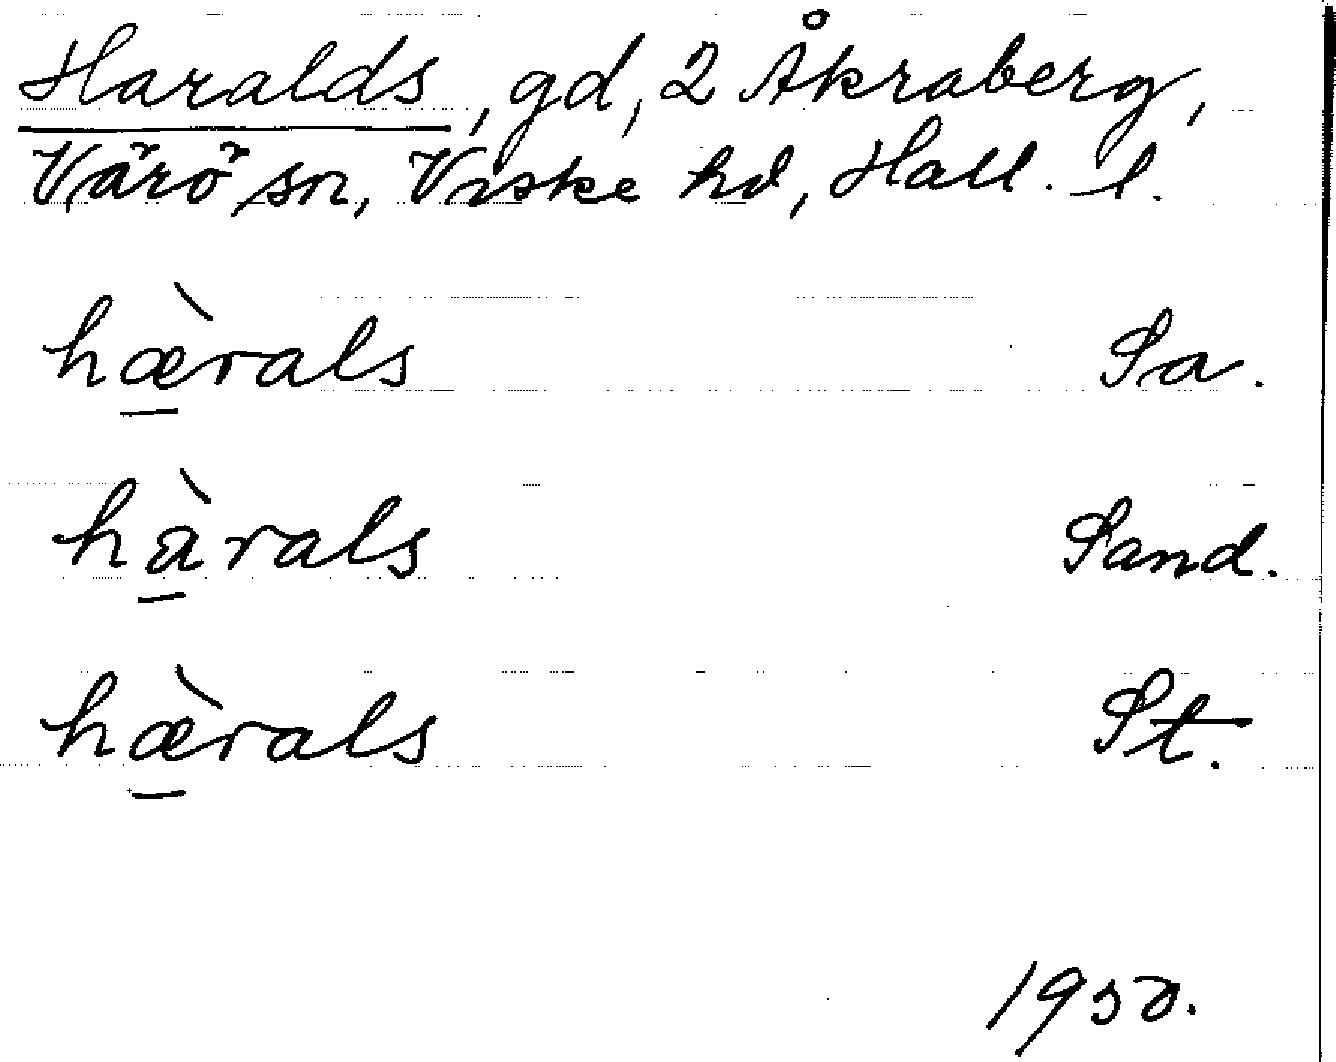 Haralds, gd, 2 Åkraberg,
Värö sn, Viske hd, Hall. l.
hæ̀rals Sa.
hàrals Sand.
hæ̀rals St.
1950.